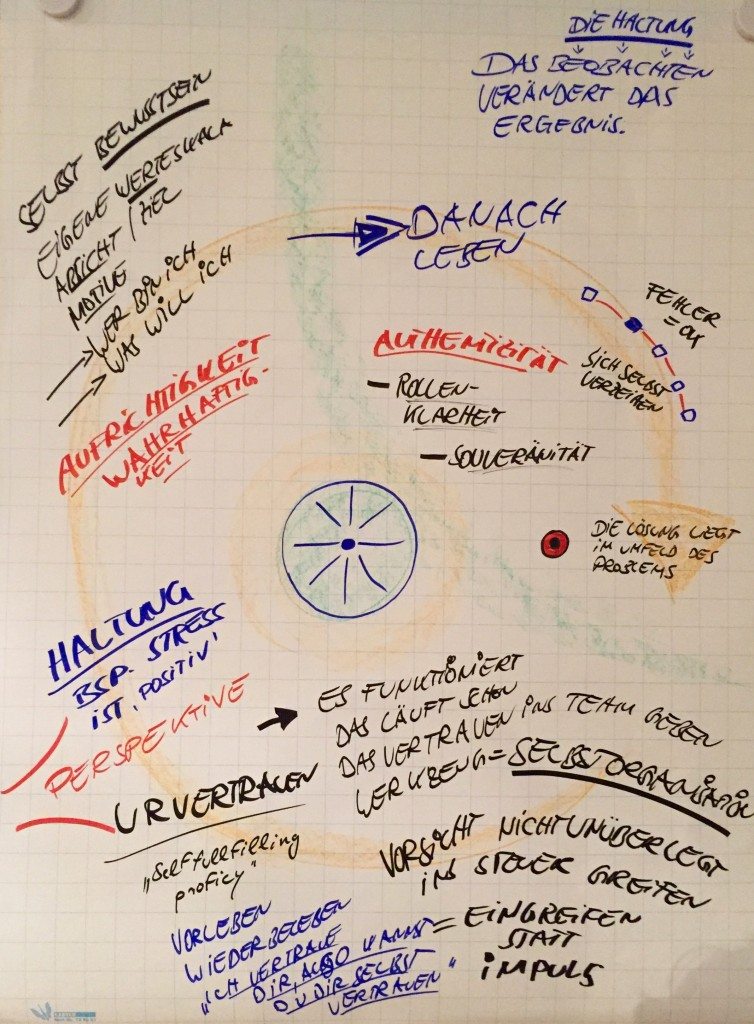 DIE HALTUNG
DAS BEOBACHTEN
VERÄNDERT DAS
ERGEBNIS.
SELBST BEWUSSTSEIN
EIGENE WERTESKALA
ABSICHT / ZIEL
MOTIVE
WER BIN ICH
WAS WILL ICH
AUFRICHTIGKEIT
WAHRHAFTIG-
KEIT
DANACH
LEBEN
FEHLER
= OK
SICH SELBST
VERZEIHEN
AUTHENTIZITÄT
- ROLLEN-
KLARHEIT
- SOUVERÄNITÄT
DIE LÖSUNG LIEGT
IM UMFELD DES
PROBLEMS
HALTUNG
BSP. STRESS
IST „POSITIV'
PERSPEKTIVE
URVERTRAUEN
„Selffullfilling
proficy"
ES FUNKTIONIERT
DAS LÄUFT SCHON
DAS VERTRAUEN INS TEAM GEBEN
WERKZEUG = SELBSTORGANISATION
VORSICHT NICHT UNÜBERLEGT
INS STEUER GREIFEN
= EINGREIFEN
STATT
IMPULS
VORLEBEN
WIEDERBELEBEN
„ICH VERTRAUE
DIR, ALSO KANNST
DU DIR SELBST
VERTRAUEN"